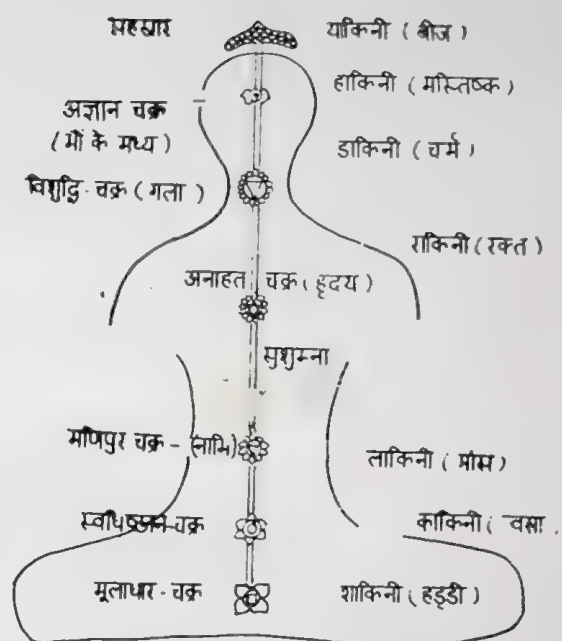 सहस्रार
याकिनी ( बीज )
हाकिनी ( मस्तिष्क )
अज्ञान चक्र –
( भौं के मध्य )
डाकिनी ( चर्म )
विशुद्धि - चक्र ( गला )
राकिनी ( रक्त )
अनाहत चक्र ( हृदय )
सुशुम्ना
मणिपुर चक्र – (नाभि)
लाकिनी ( मांस )
स्वधिष्ठान-चक्र
काकिनी ( वसा .
मूलाधार - चक्र
शाकिनी ( हड्डी )